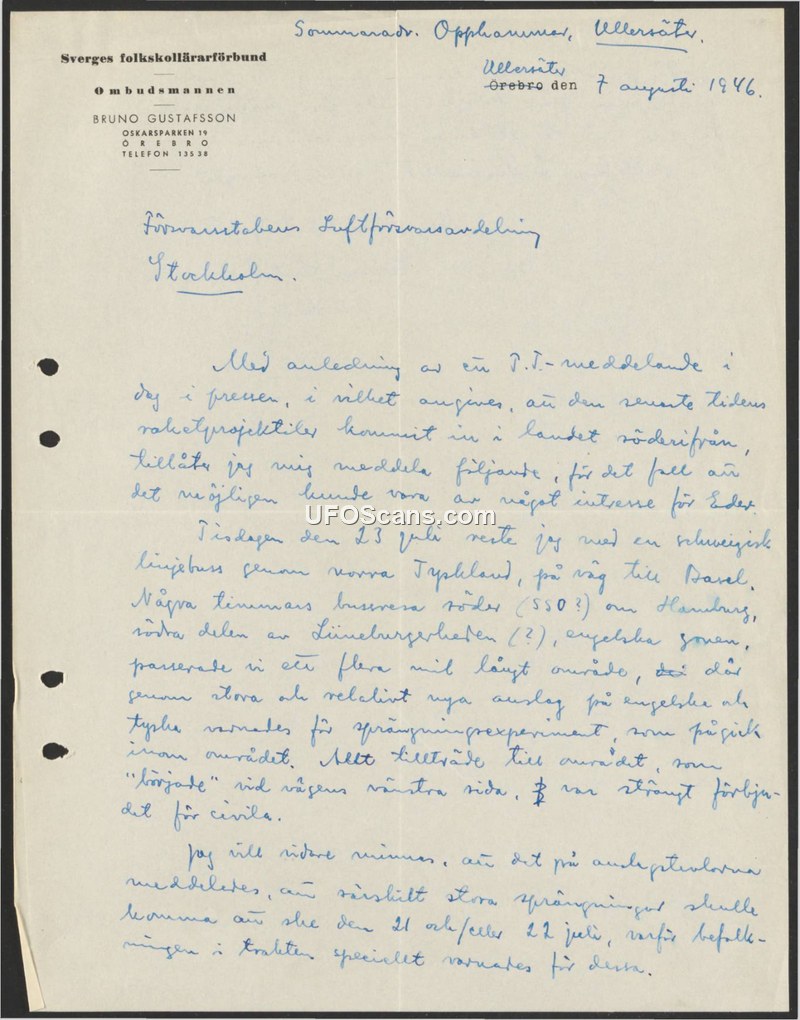 Sommaradr. Opphammar, Ullersäter.
Sverges folkskollärarförbund
Ombudsmannen
BRUNO GUSTAFSSON
OSKARSPARKEN 19
ÖREBRO
TELEFON 13538
Ullersäter
Örebro den 7 augusti 1946.
Försvarsstabens Luftförsvarsavdelning
Stockholm.
Med anledning av ett T.T.-meddelande i
dag i pressen, i vilket angives, att den senaste tidens
raketprojektiler kommit in i landet söderifrån,
tillåter jag mig meddela följande, för det fall att
det möjligen kunde vara av något intresse för Eder.
UFOScans.com
Tisdagen den 23 juli reste jag med en schweizisk
linjebuss genom norra Tyskland, på väg till Basel.
Några timmars bussresa söder (SSO?) om Hamburg,
södra delen av Lüneburgerheden (?), engelska zonen,
passerade vi ett flera mil långt område, där
genom stora och relativt nya anslag på engelska och
tyska varnades för sprängningsexperiment, som pågick
inom området. Allt tillträde till området, som
"började" vid vägens vänstra sida, var strängt förbju-
det för civila.
Jag vill vidare minnas, att det på anslagstavlorna
meddelades, att särskilt stora sprängningar skulle
komma att ske den 21 och/eller 22 juli, varför befolk-
ningen i trakten speciellt varnades för dessa.